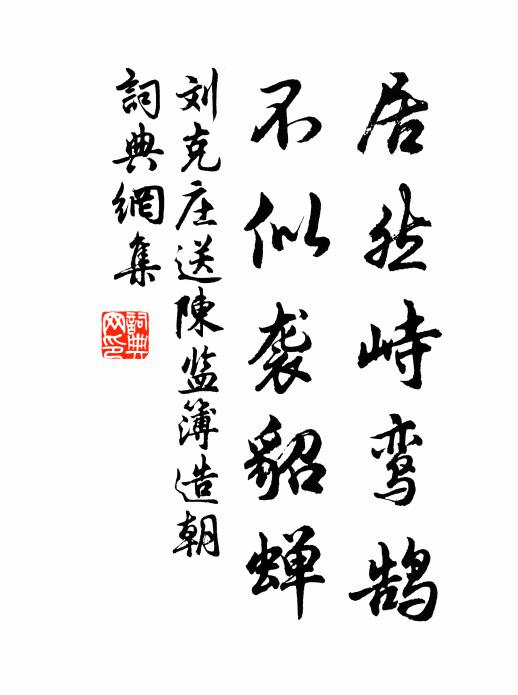 居然峙鸾鹄
不似袭貂蝉
刘克庄送陳监簿造朝
詞典網集
詞典
网印